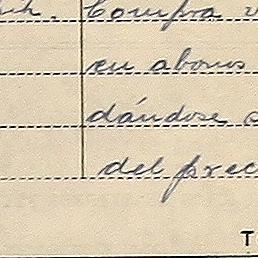 Compra
en abonos
dándose
del prec
T